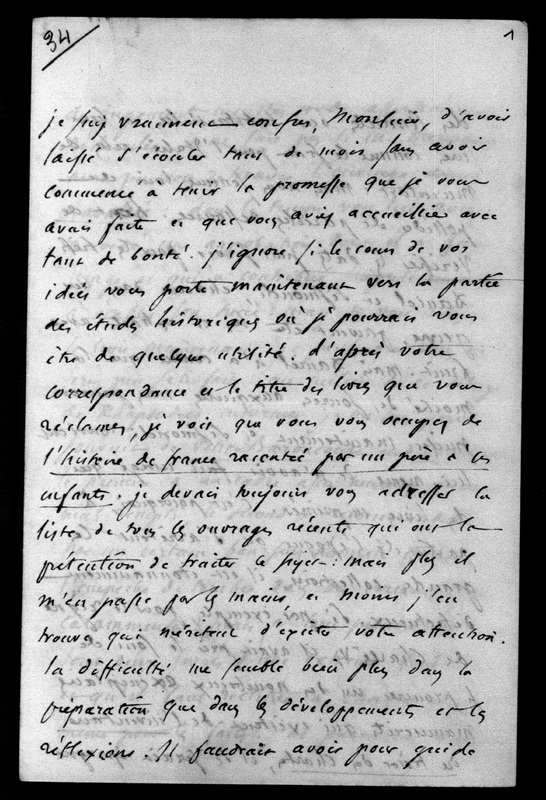 34
1
je suis vraiment confus, Monsieur, d'avoir
laissé s'écouler tant de mois sans avoir
commencé à tenir la promesse que je vous
avais faite et que vous aviez accueillie avec
tant de bonté. j'ignore si le cours de vos
idées vous porte maintenant vers la partie
des études historiques où je pourrais vous
être de quelque utilité. d'après votre
correspondance et le titre des livres que vous
réclamez, je vois que vous vous occupez de
l'histoire de france racontée par un père à ses
enfants. je devais toujours vous adresser la
liste de tous les ouvrages récents qui ont la
prétention de traiter ce sujet : mais plus il
m'en passe par les mains, et moins j'en
trouve qui méritent d'exciter votre attention.
la difficulté me semble bien plus dans la
préparation que dans les développements et les
réflexions. Il faudrait avoir pour guide